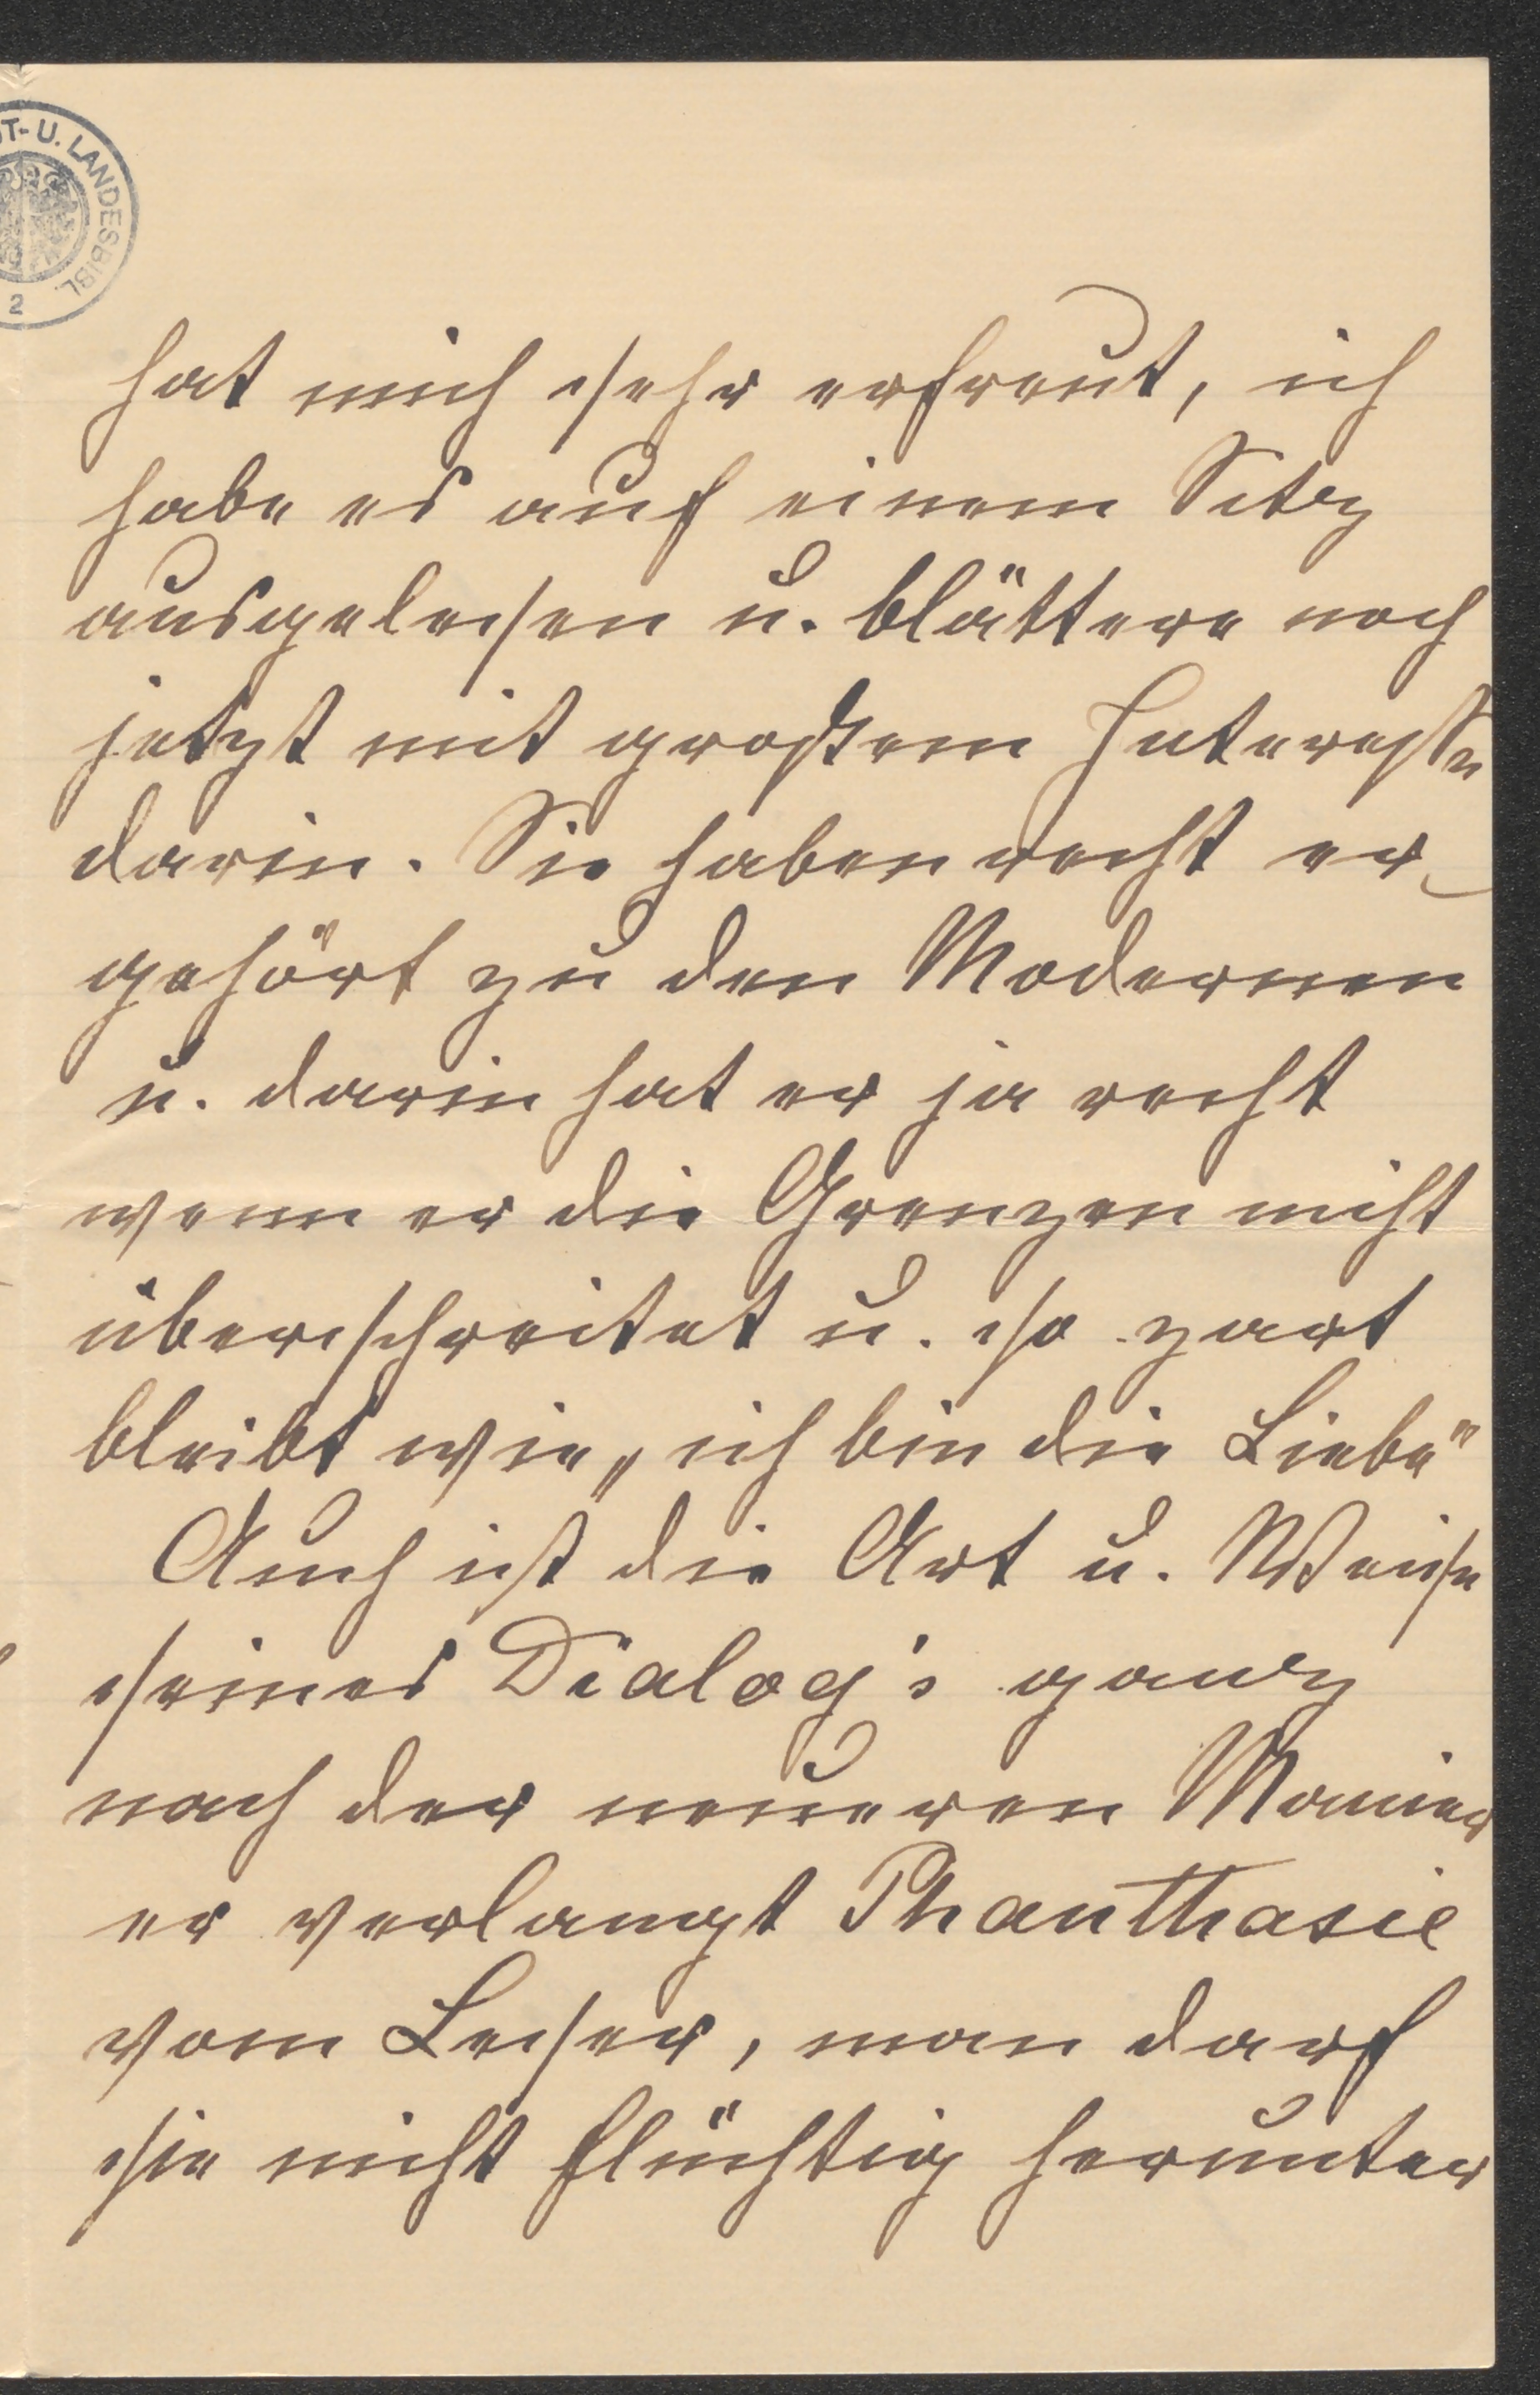 T- U. LANDESBIBL.
2
hat mich sehr erfreut, ich
habe es auf einem Sitz
ausgelesen u. blättere noch
jetzt mit großem Interesse
darin. Sie haben recht er
gehört zu den Modernen
u. darin hat er ja recht
wenn er die Grenzen nicht
überschreitet u. so zart
bleibt wie „ich bin die Liebe"
Auch ist die Art u. Weise
seines Dialog's ganz
nach der neueren Manier
er verlangt Phanthasie
vom Leser, man darf
sie nicht flüchtig herunter